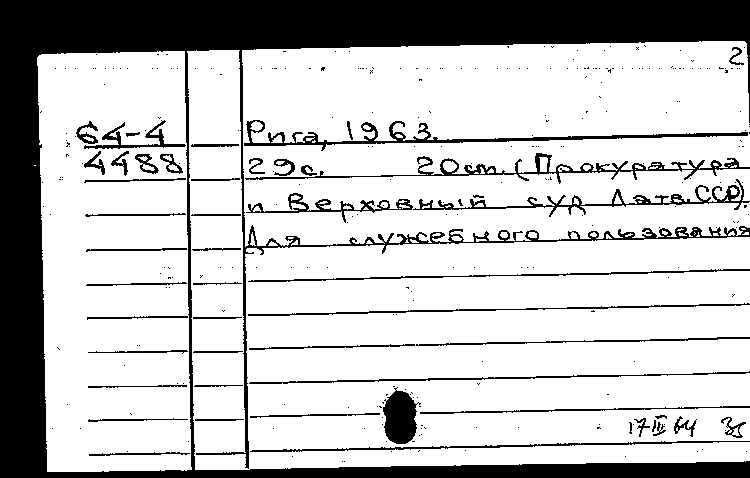 2
64-4 Рига, 1963.
4488 29с. 20см. (Прокуратура
и Верховный суд Латв.ССР).
Для служебного пользования
17 III 64